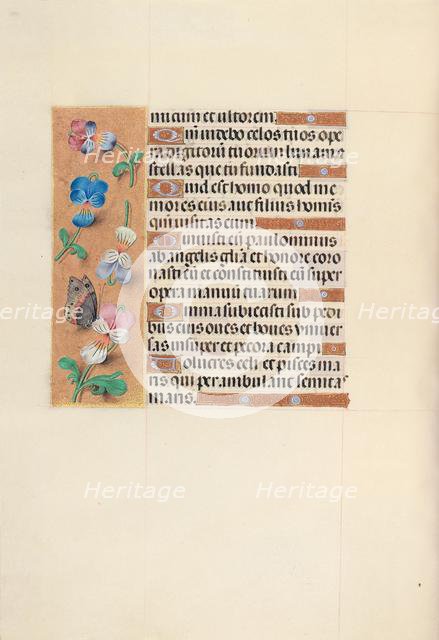 micum et ultorem.
Qm̄ videbo celos tuos ope
ra digitorū tuorum lunam et
stellas que tu fundasti
Quid est homo quod me
mores eius aut filius homīs
qm̄ visitas eum
Minuisti eū paulominus
ab angelis gl̄ia et honore coro
nasti eū et cōnstituisti eū super
opera manuū tuarum
Omnia subiecisti sub pedi
bus eius oues et boues vniuer
sas insuper et pecora campi
Volucres celi et pisces ma
ris qui perambulant semitas
maris.
Heritage Heritage
Heritage Heritage Heritage
Heritage Heritage